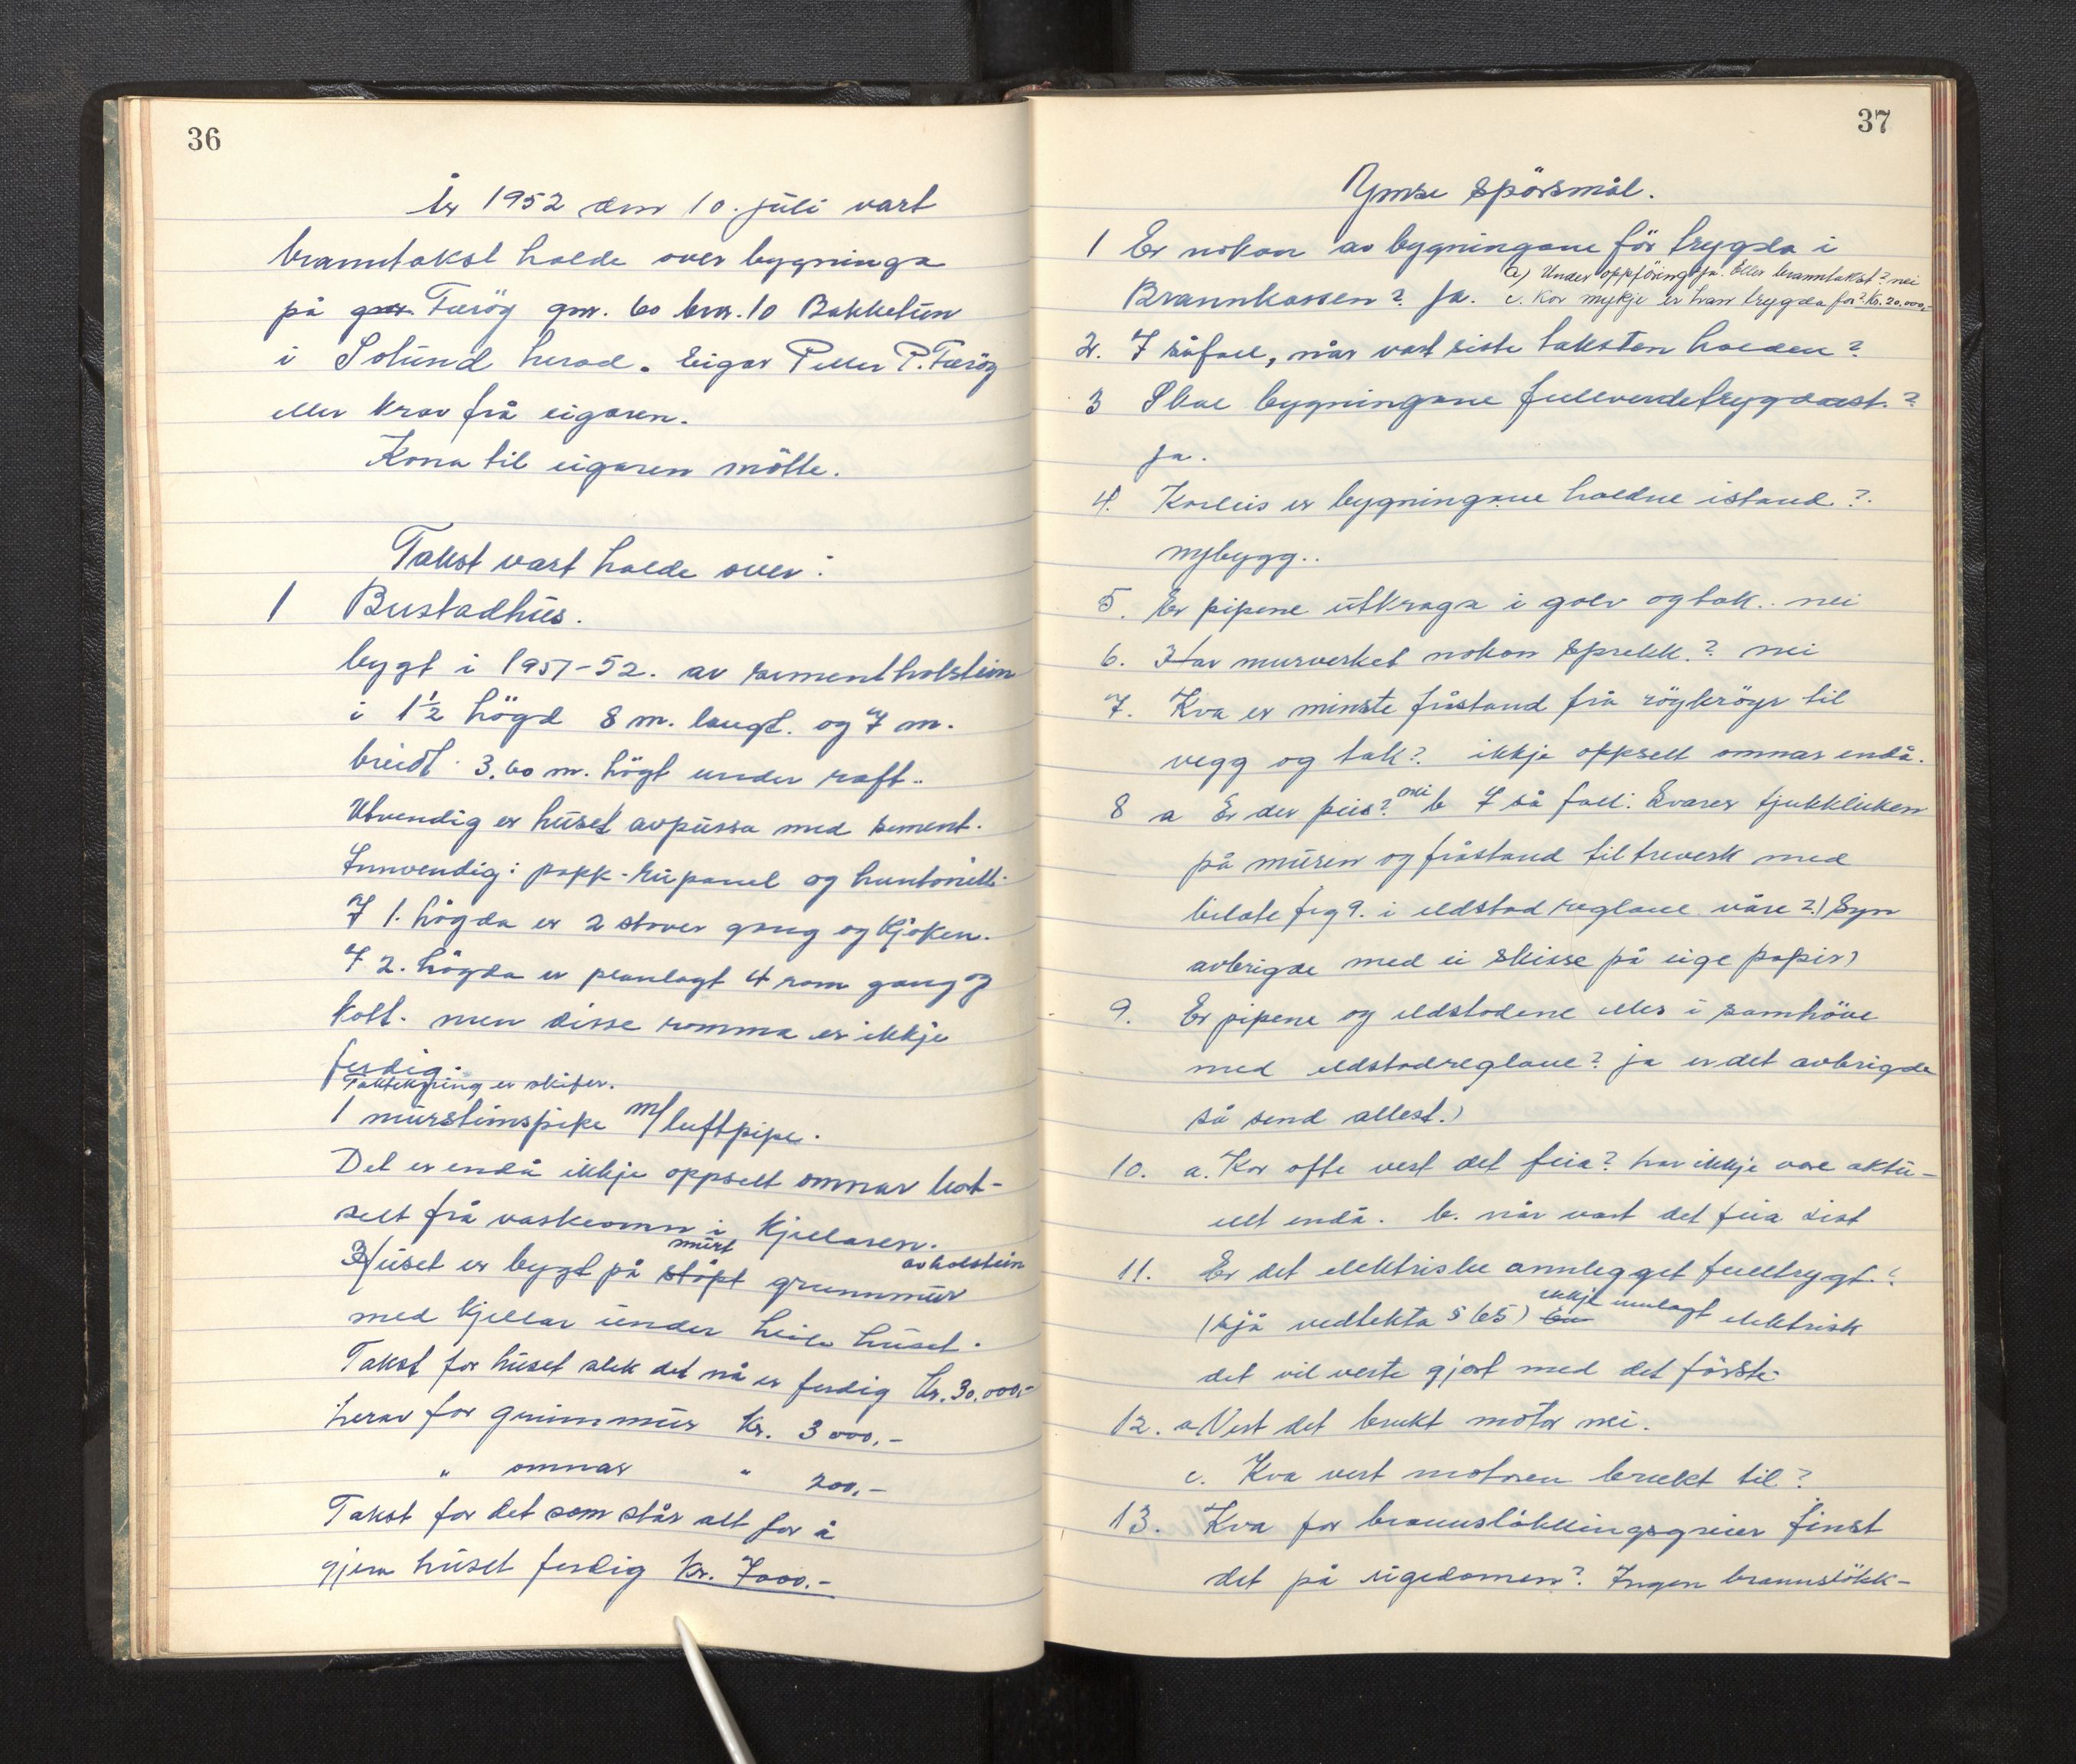 36
År 1952 den 10. juli vart
branntakst halde over bygninga
på gnr. Færöy gnr. 60 bnr. 10 Bakketun
i Solund herad. Eigar Petter P. Færöy
etter krav frå eigaren.
Kona til eigaren mötte.
Takst vart halde over:
1 Bustadhus.
bygt i 1951-52. av sementholstein
i 1½ högd 8 m. langt. og 7 m.
breidt. 3.60 m. högt under raft..
Utvendig er huset avpussa med sement.
Innvendig: papp-rupanel og huntonitt.
I 1. högda er 2 stover gang og kjöken.
I 2. högda er planlagt 4 rom gang og
kott. men disse romma er ikkje
ferdig.
Taktekjing er skifer.
1 mursteinspipe m/luftpipe.
Det er endå ikkje oppsett omnar bort-
sett frå vaskeomn i kjellaren.
Huset er bygt på stöpt murt grunnmur av holstein
med kjellar under heile huset.
Takst for huset slik det nå er ferdig kr. 30.000,-
herav for grunnmur kr. 3000,-
" omnar " 200,-
Takst for det som står att for å
gjera huset ferdig kr. 7000.-
37
Ymse spörsmål.
1 Er nokon av bygningane för trygda i
a) Under oppföring ja. Eller branntakst? nei
Brannkassen? Ja. c. Kor mykje er han trygda for? Kr. 20.000,-
2. I såfall, når vart siste taksten halden?
3 Skal bygningane fullverdetrygdast.?
ja.
4. Korleis er bygningane haldne istand?
nybygg..
5. Er pipene utkraga i golv og tak.. nei
6. Har murverket nokon sprekk.? nei
7. Kva er minste fråstand frå röykröyr til
vegg og tak? ikkje oppsett omnar endå.
8 a Er der peis? nei b I så fall: Svarer tjukkleiken
på muren og fråstand til treverk med
bilate fig 9. i eldstad reglane våre?) Syn
avbrigde med ei skisse på eige papir)
9. Er pipene og eldstadene elles i samhöve
med eldstadreglane? ja er det avbrigde
så send attest.)
10. a. Kor ofte vest det feia? har ikkje vore aktu-
ellt endå. b. når vart det feia sist
11. Er det elektriske annlegget fulltrygt.?
(sjå vedtekta § 65) Er ikkje innlagt elektrisk
det vil verte gjort med det förste.
12. a Vert det brukt motor nei.
c. Kva vert motoren brukt til?
13. Kva for brannslökkingsgreier finst
det på eigedomen? Ingen brannslökk-